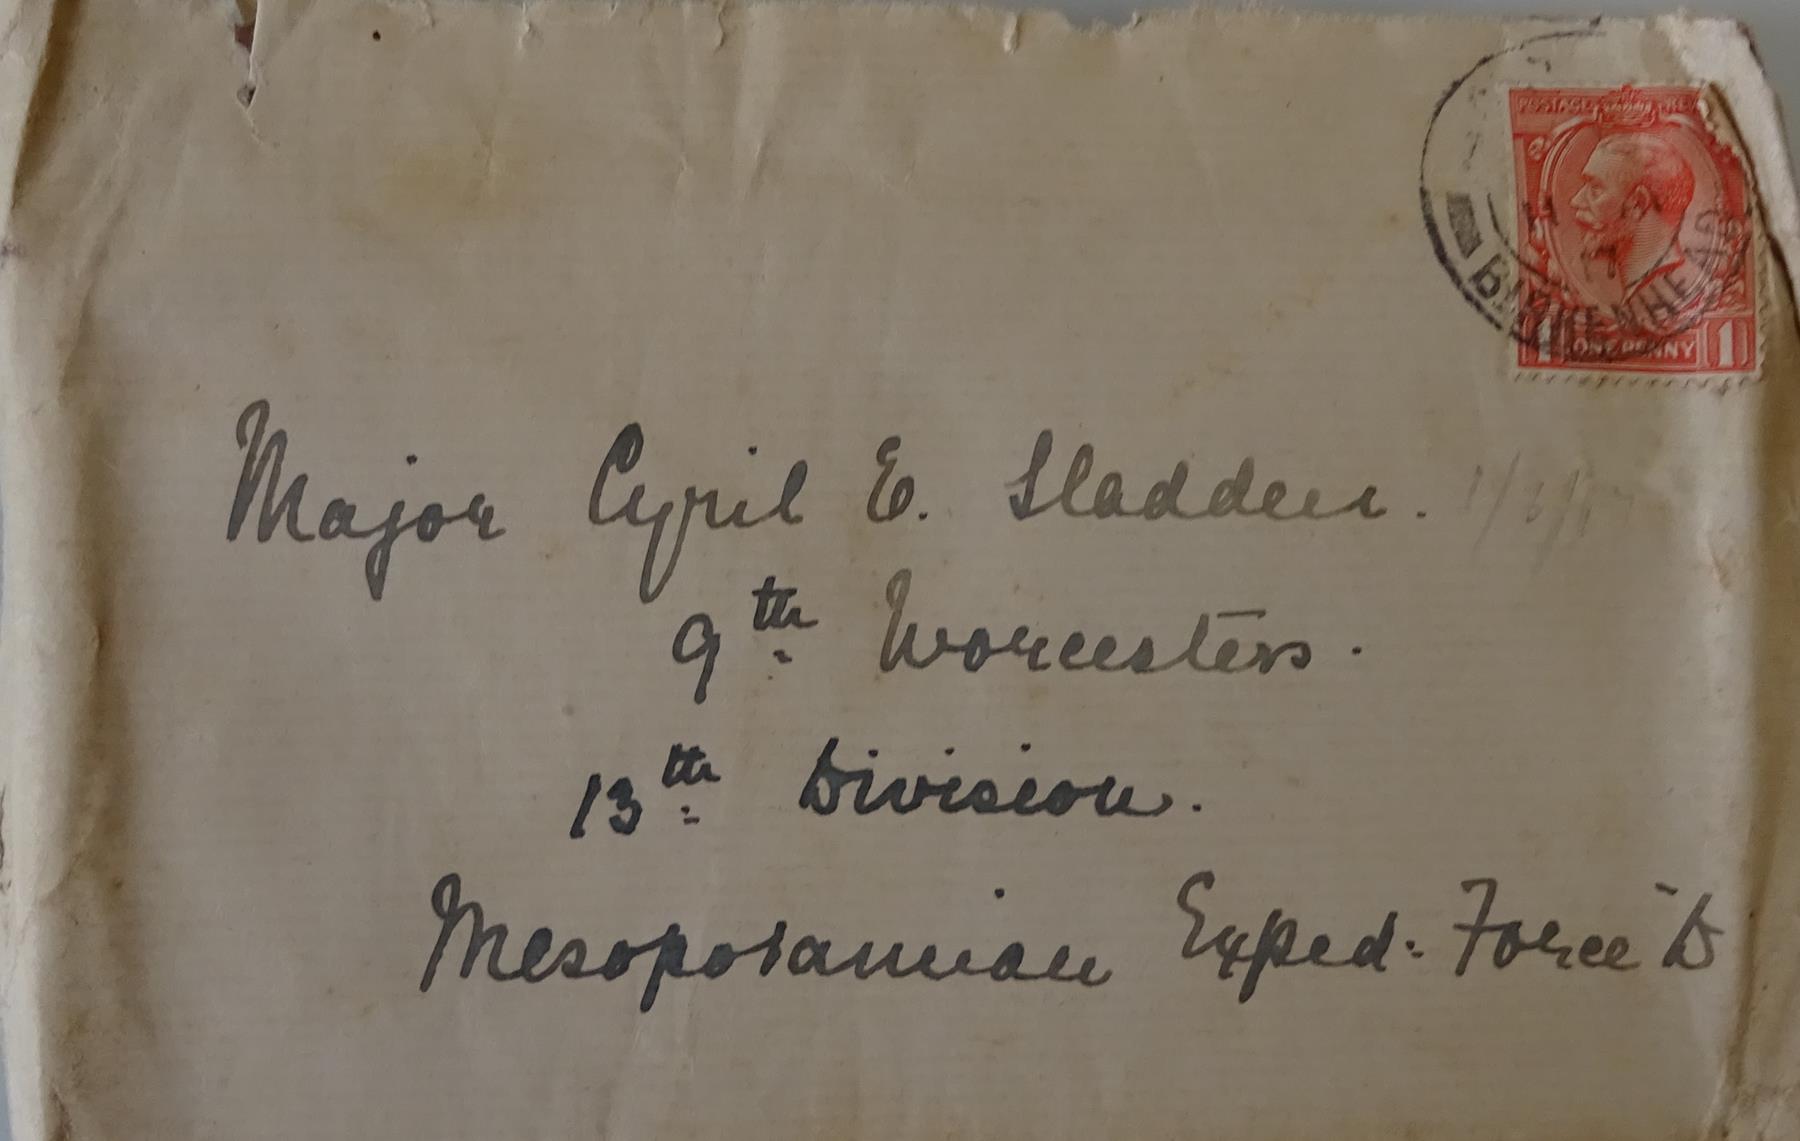 POSTAGE REV
BIRKENHEAD
17
1 ONE PENNY 1
Major Cyril E. Sladden.
9th Worcesters.
13th Division.
Mesopotamian Exped: Force "D